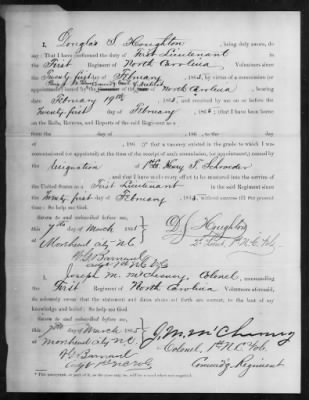 I, Douglas S. Houghton, being duly sworn, do
say: That I have performed the duty of First Lieutenant in
the First Regiment of North Carolina Volunteers since
the Twenty first day of February, 1865, by virtue of a commission (or
appointment) issued by the of North Carolina, bearing
date February 19th, 1865, and received by me on or before the
Twenty first day of February, 1865; that I have been borne
on the Rolls, Returns, and Reports of the said Regiment as a
from the day of , 186 , to the day
of , 186 ;* that a vacancy existed in the grade to which I was
commissioned (or appointed) at the time of the receipt of such commission, (or appointment,) caused by
the resignation of 1st Lt. Henry T. Schroeder
; and that I have used every effort to be mustered into the service of
the United States as a First Lieutenant in the said Regiment since
the Twenty first day of February, 1865, without till the present
time: So help me God.
Sworn to and subscribed before me,
this 7th day of March 1865
at Morehead City N.C.
D. S. Houghton
1st N.C. Vols.
I, Joseph M. McChesney, Colonel, commanding
the First Regiment of North Carolina Volunteers aforesaid,
do solemnly swear that the statement and dates above set forth are correct, to the best of my
knowledge and belief: So help me God.
Sworn to and subscribed before me,
this 7th day of March 1865
at Morehead City N.C.
J. M. McChesney
Colonel, 1st N.C. Vols.
Comm'dg Regiment
* This paragraph, or part of it, in the same way, will be erased when not required.